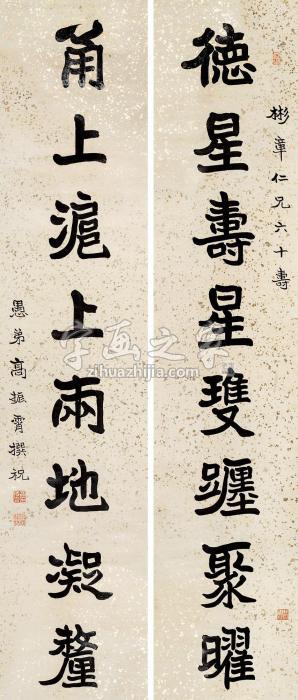 彬章仁兄六十壽
德星壽星雙躔聚曜
甬上滬上兩地凝釐
愚弟高振霄撰祝
字画之家
zihuazhijia.com